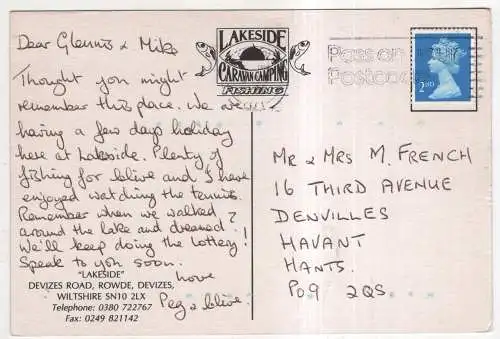 Dear Glennis & Mike
Thought you might
remember this place. We are
having a few days holiday
here at Lakeside. Plenty of
fishing for Clive and I have
enjoyed watching the tennis.
Remember when we walked
around the lake and dreamed?
We'll keep doing the lottery!
Speak to you soon.
love
Peg & Clive.
"LAKESIDE"
DEVIZES ROAD, ROWDE, DEVIZES,
WILTSHIRE SN10 2LX
Telephone: 0380 722767
Fax: 0249 821142
LAKESIDE
CARAVAN CAMPING
FISHING
Pass on
Postcode
2ND
MR & MRS M. FRENCH
16 THIRD AVENUE
DENVILLES
HAVANT
HANTS.
PO9 2QS